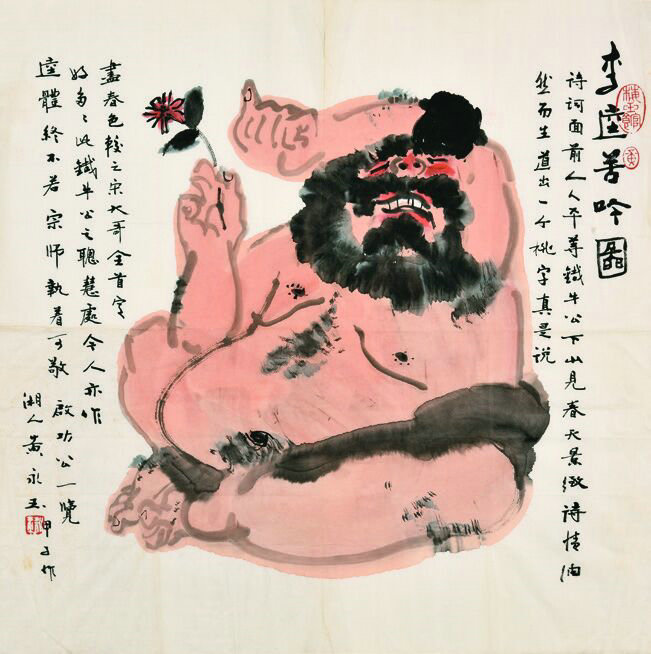 李逵苦吟圖
诗词面前人人平等鐵牛公下山見春天景緻詩情涌
然而生道出一个桃字真是说
盡春色較之宋大哥全首字
好多々此鐵牛公之聰慧處今人亦作
逵體終不若宗師執着可敬 啟功公一覽
湘人黄永玉 甲子作